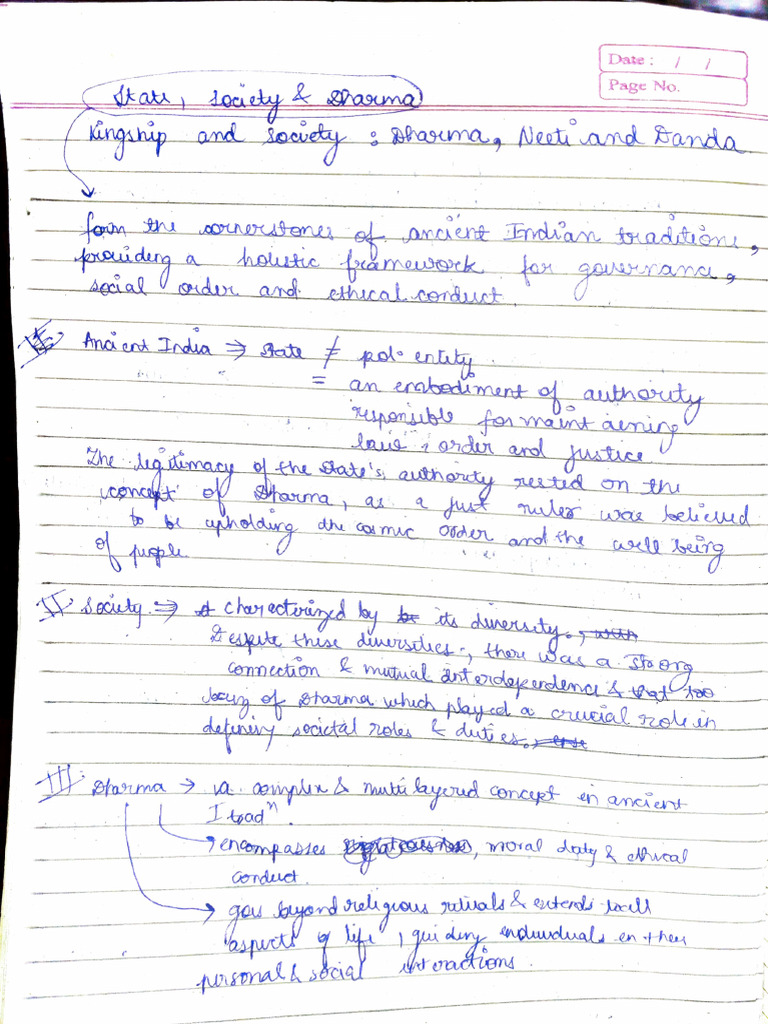 Date : / /
Page No.
State, Society & Dharma
Kingship and Society : Dharma, Neeti and Danda
form the cornerstones of ancient Indian traditions,
providing a holistic framework for governance,
social order and ethical conduct.
I. Ancient India ⇒ State ≠ pol. entity.
= an embodiment of authority
responsible for maintaening
law, order and justice
The legitimacy of the state's authority rested on the
concept of Dharma, as a just ruler was believed
to be upholding the cosmic order and the well being
of people
II. Society ⇒ characterized by its diversity.
Despite these diversities, there was a strong
connection & mutual interdependence & that too
bcuz of Dharma which played a crucial role in
defining societal roles & duties.
III Dharma → a complex & multilayered concept in ancient
I tradⁿ.
→ encompasses righteousness, moral duty & ethical
conduct.
→ goes beyond religious rituals & extends to all
aspects of life, guiding individuals in their
personal & social interactions.